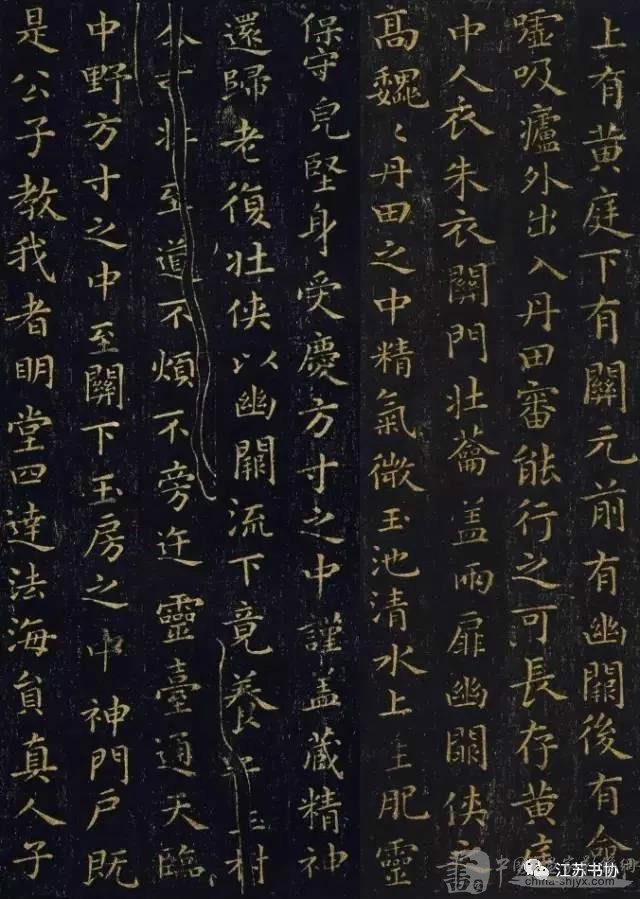 上有黄庭下有關元前有幽闕後有命
嘘吸廬外出入丹田審能行之可長存黄庭
中人衣朱衣關門壯蘥盖兩扉幽闕侠
高巍〻丹田之中精氣微玉池清水上生肥靈
保守皃堅身受慶方寸之中謹盖藏精神
還歸老復壯侠以幽闕流下竟養树
至道不煩不旁迕靈臺通天臨
中野方寸之中至關下玉房之中神門戶既
是公子教我者明堂四達法海員真人子
江苏书协
china-shjyx.com